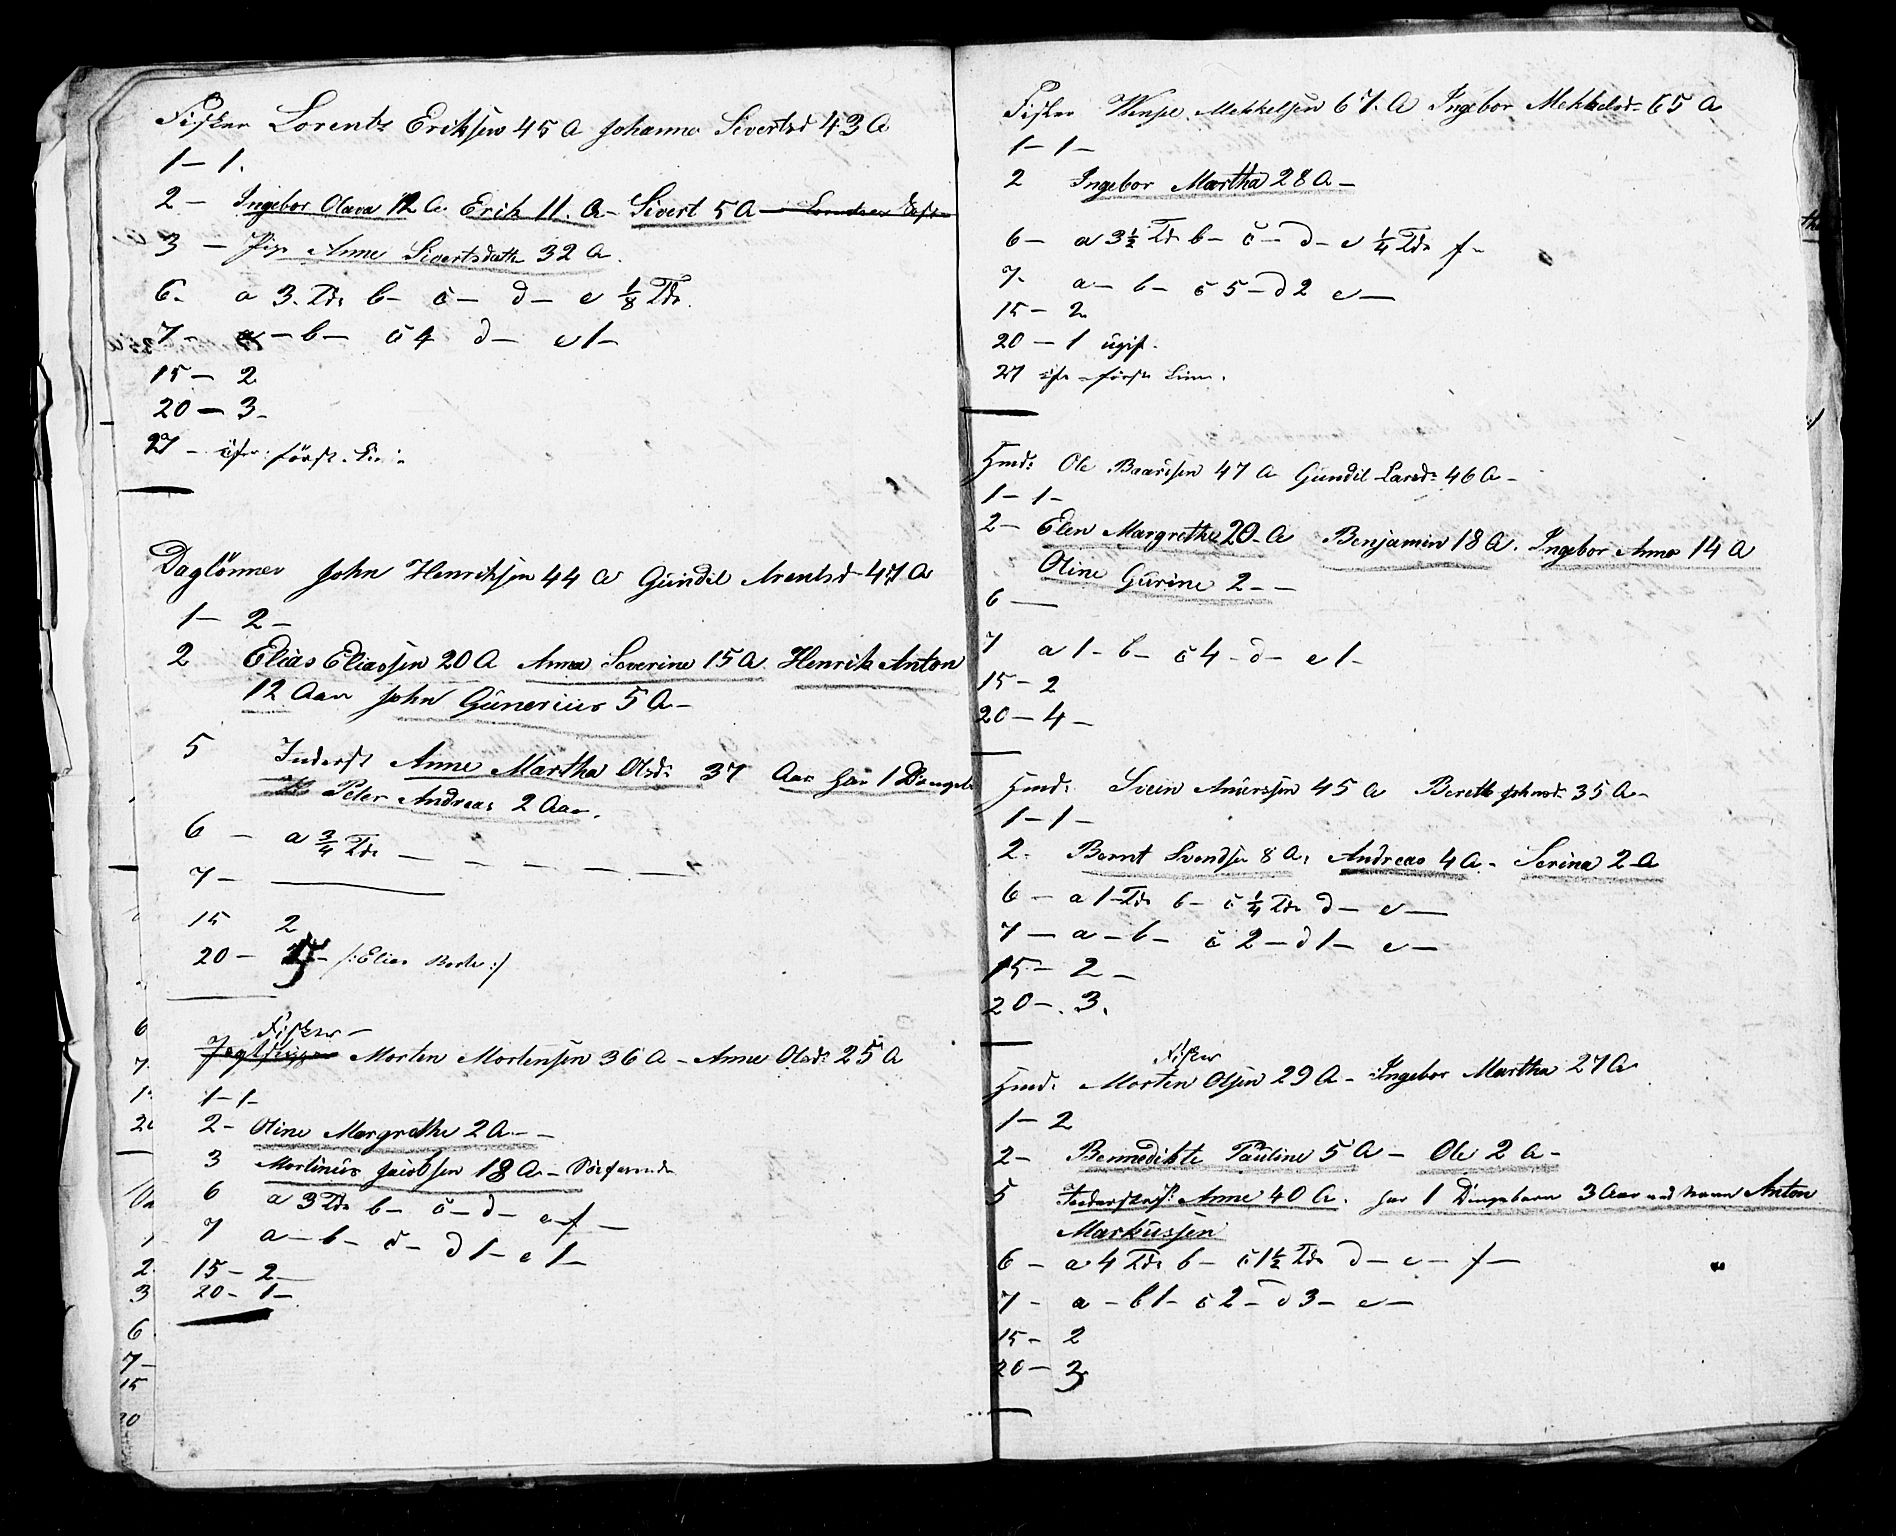 Fisker Lorents Eriksen 45 A Johanna Sivertsd 43 A
1 – 1.
2 – Ingebor Olava 12 A. Erik 11. A – Sivert 5 A
3 – Pige Anne Sivertsdatte 32 A.
6. a 3. Tdr b – c – d – e 1/8 Tdr.
7 – a – b – c 4 d – e 1 –
15 – 2
20 – 3 –
27 – först
Daglönner John Henriksen 44 A Gundil Arentsd 47 A
1 – 2 –
2 Elias Eliassen 20 A Anna Severine 15 A Henrik Anton
12 Aar John Gunerius 5 A –
5 Inderst Anne Martha Olsd: 37 Aar har 1
Peter Andreas 2 Aar.
6 – a 3/4 Tdr – – – – –
7 –
15 2
20 – /: Elias :/
Fisker –
Morten Mortensen 36 A – Anne Olsd: 25 A
1 – 1 –
2 – Oline Margrethe 2 A – –
3 Martinus Jacobsen 18 A –
6 a 3 Tdr b – c – d – e – f –
7 a – b – c – d 1 – e 1 –
15 – 2 –
20 – 1 –
6
7.
1.
2
2.
3
6.
7 –
15
20
Fisker Mekkelsen 67. A Ingebor Mekkelsd: 65 A
1 – 1 –
2 Ingebor Martha 28 A –
6 – a 3 1/2 Tdr b – c – d – e 1/4 Tdr f –
7. a – b – c 5 – d 2 e –
15 – 2
20 – 1 ugift.
27 först
Hmd: Ole Baarsen 47 A Gundil Larsd: 46 A –
1 – 1 –
2 – Elen Margrethe 20 A Benjamin 18 A. Ingebor Anna 14 A
Oline Gurine 2 – –
6 –
7 a 1 – b – c 4 – d – e 1 –
15 – 2
20 – 4 –
Hmd: Svein 45 A Bereth Johnsd: 35 A –
1 – 1 –
2. Bernt Svendsen 8 A, Andreas 4 A – Serina 2 A
6 – a 1 Tdr b – c 1/4 Tdr d – e –
7 – a – b – c 2 – d 1 – e –
15 – 2 –
20 – . 3.
Fisker
Hmd: Morten Olsen 29 A – Ingebor Martha 27 A
1 – 2
2 – Bennedikte Pauline 5 A – Ole 2 A –
5 Anne 40 A. har 1 3 Aar ved Navn Anton
Markussen
6 – a 4 Tdr b – c 1 1/2 Tdr d – e – f –
7 – a – b 1 – c 2 – d 3 – e –
15 – 2
20 – 3